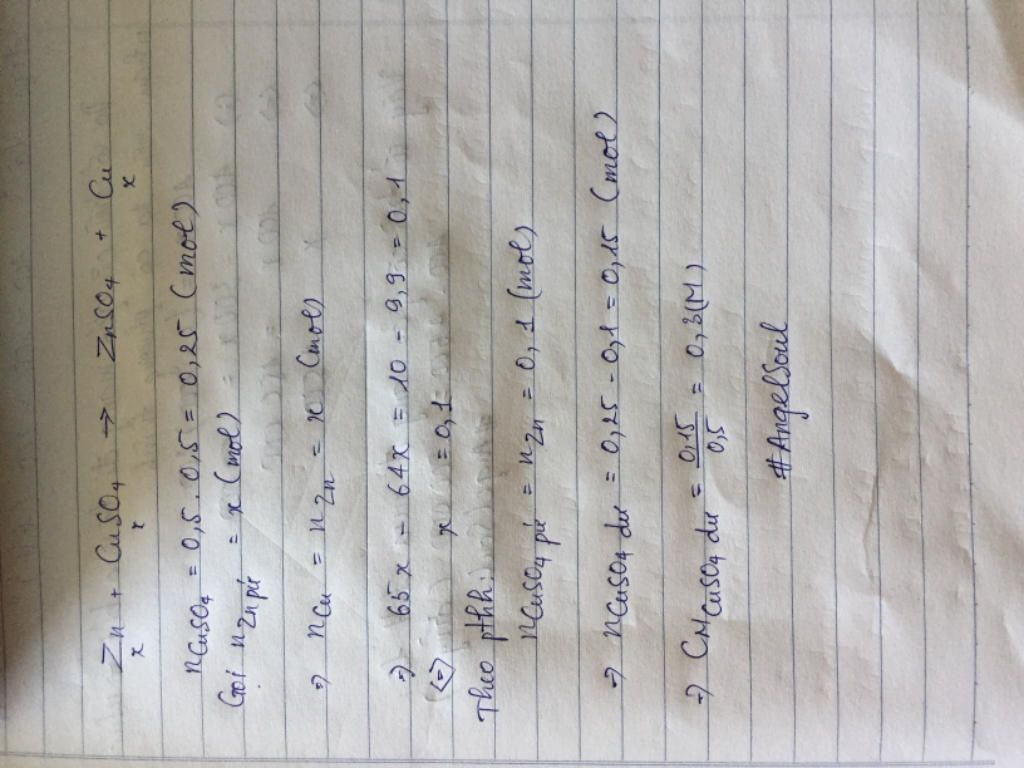 Zn + CuSO4 → ZnSO4 + Cu
x x x
nCuSO4 = 0,5 . 0,5 = 0,25 (mol)
Gọi nZn pứ = x (mol)
=> nCu = nZn = x (mol)
=> 65x - 64x = 10 - 9,9 = 0,1
<=> x = 0,1
Theo pthh:
nCuSO4 pứ = nZn = 0,1 (mol)
=> nCuSO4 dư = 0,25 - 0,1 = 0,15 (mol)
=> CM CuSO4 dư = 0,15/0,5 = 0,3(M)
#AngelSoul